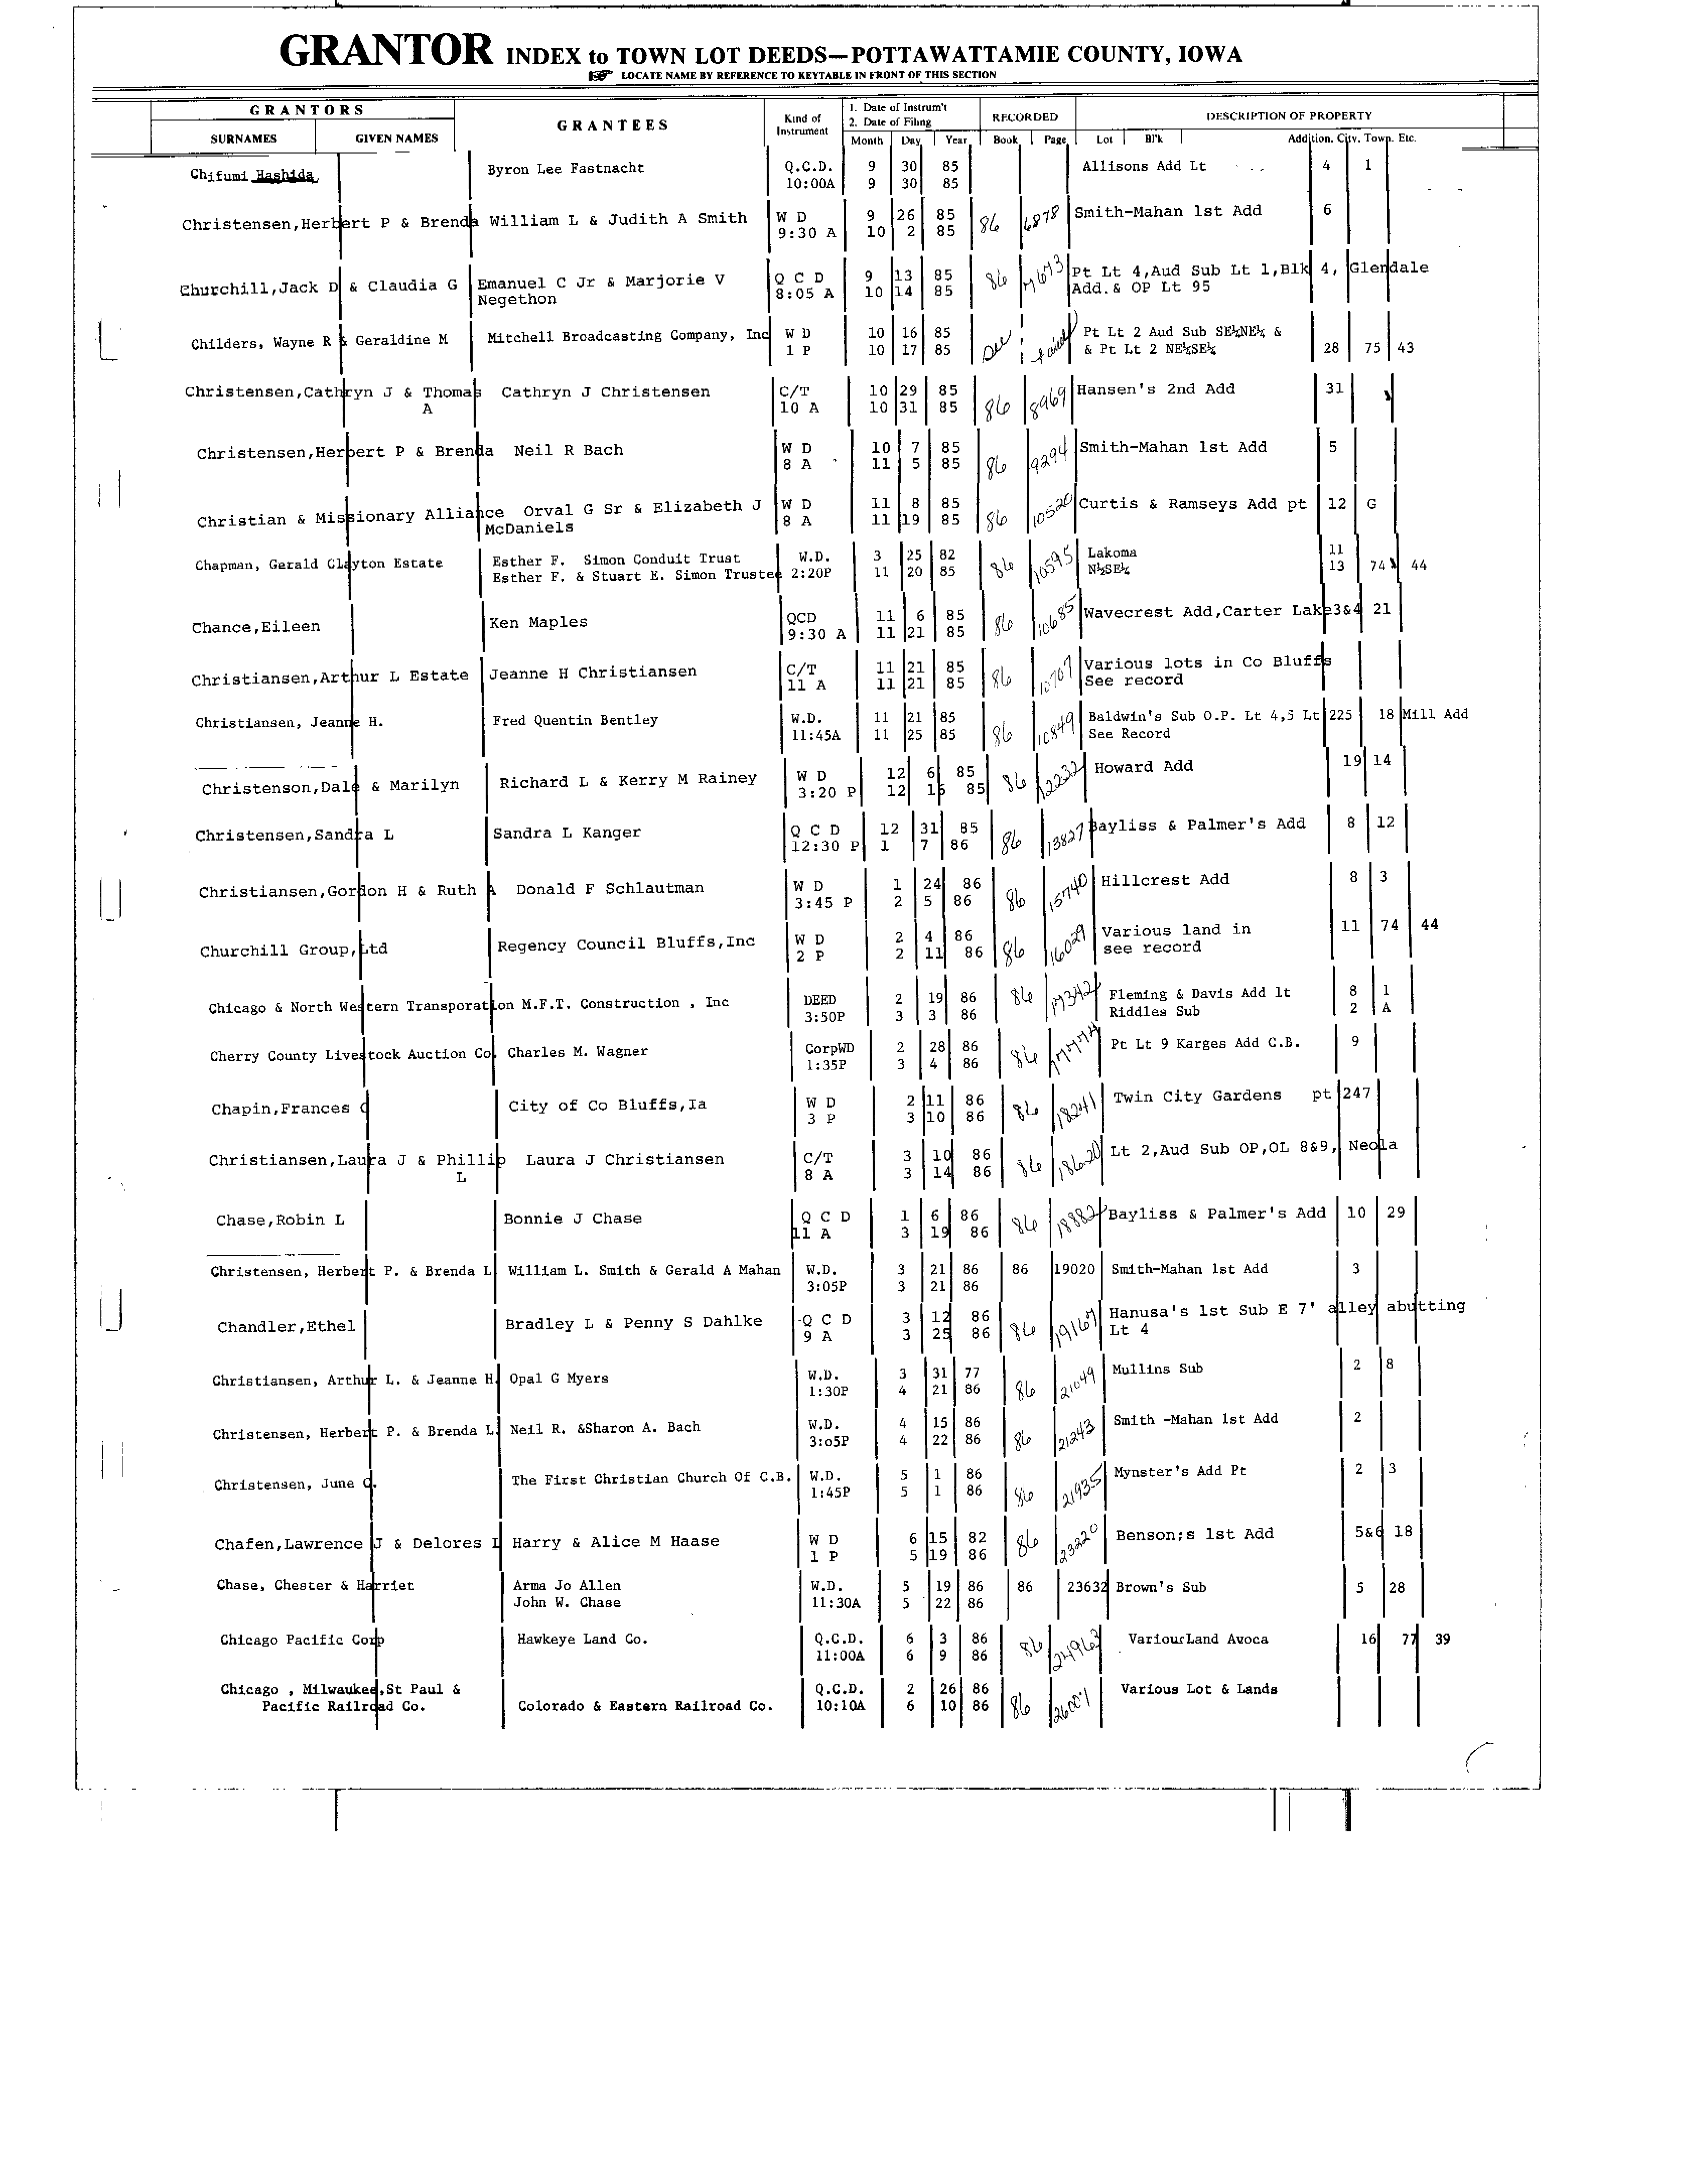 GRANTOR INDEX to TOWN LOT DEEDS—POTTAWATTAMIE COUNTY, IOWA
LOCATE NAME BY REFERENCE TO KEYTABLE IN FRONT OF THIS SECTION
GRANTORS GRANTEES Kind of Instrument 1. Date of Instrum't RECORDED DESCRIPTION OF PROPERTY
2. Date of Filing
SURNAMES GIVEN NAMES Month Day Year Book Page Lot Bl'k Addition, City, Town, Etc.
Chifumi Hashida Byron Lee Fastnacht Q.C.D. 9 30 85 Allisons Add Lt 4 1
10:00A 9 30 85
Christensen,Herbert P & Brenda William L & Judith A Smith W D 9 26 85 86 6878 Smith-Mahan 1st Add 6
9:30 A 10 2 85
Churchill,Jack D & Claudia G Emanuel C Jr & Marjorie V Q C D 9 13 85 86 7673 Pt Lt 4,Aud Sub Lt 1,Blk 4, Glendale
Negethon 8:05 A 10 14 85 Add.& OP Lt 95
Childers, Wayne R & Geraldine M Mitchell Broadcasting Company, Inc W D 10 16 85 See Pt Lt 2 Aud Sub SE¼NE¼ &
1 P 10 17 85 & Pt Lt 2 NE¼SE¼ 28 75 43
Christensen,Cathryn J & Thomas Cathryn J Christensen C/T 10 29 85 86 8969 Hansen's 2nd Add 31
A 10 A 10 31 85
Christensen,Herbert P & Brenda Neil R Bach W D 10 7 85 86 9294 Smith-Mahan 1st Add 5
8 A 11 5 85
Christian & Missionary Alliance Orval G Sr & Elizabeth J W D 11 8 85 86 10520 Curtis & Ramseys Add pt 12 G
McDaniels 8 A 11 19 85
Chapman, Gerald Clayton Estate Esther F. Simon Conduit Trust W.D. 3 25 82 86 10595 Lakoma 11
Esther F. & Stuart E. Simon Trustee 2:20P 11 20 85 N½SE¼ 13 74 44
Chance,Eileen Ken Maples QCD 11 6 85 86 10685 Wavecrest Add,Carter Lake3&4 21
9:30 A 11 21 85
Christiansen,Arthur L Estate Jeanne H Christiansen C/T 11 21 85 86 10767 Various lots in Co Bluffs
11 A 11 21 85 See record
Christiansen, Jeanne H. Fred Quentin Bentley W.D. 11 21 85 86 10849 Baldwin's Sub O.P. Lt 4,5 Lt 225 18 Mill Add
11:45A 11 25 85 See Record
Christenson,Dale & Marilyn Richard L & Kerry M Rainey W D 12 6 85 86 12232 Howard Add 19 14
3:20 P 12 16 85
Christensen,Sandra L Sandra L Kanger Q C D 12 31 85 86 13827 Bayliss & Palmer's Add 8 12
12:30 P 1 7 86
Christiansen,Gordon H & Ruth A Donald F Schlautman W D 1 24 86 86 15740 Hillcrest Add 8 3
3:45 P 2 5 86
Churchill Group,Ltd Regency Council Bluffs,Inc W D 2 4 86 86 16029 Various land in 11 74 44
2 P 2 11 86 see record
Chicago & North Western Transporation M.F.T. Construction , Inc DEED 2 19 86 86 17342 Fleming & Davis Add lt 8 1
3:50P 3 3 86 Riddles Sub 2 A
Cherry County Livestock Auction Co. Charles M. Wagner CorpWD 2 28 86 86 Pt Lt 9 Karges Add C.B. 9
1:35P 3 4 86
Chapin,Frances C City of Co Bluffs,Ia W D 2 11 86 86 18241 Twin City Gardens pt 247
3 P 3 10 86
Christiansen,Laura J & Phillip Laura J Christiansen C/T 3 10 86 86 18620 Lt 2,Aud Sub OP,OL 8&9, Neola
L 8 A 3 14 86
Chase,Robin L Bonnie J Chase Q C D 1 6 86 86 18882 Bayliss & Palmer's Add 10 29
11 A 3 19 86
Christensen, Herbert P. & Brenda L William L. Smith & Gerald A Mahan W.D. 3 21 86 86 19020 Smith-Mahan 1st Add 3
3:05P 3 21 86
Chandler,Ethel Bradley L & Penny S Dahlke Q C D 3 12 86 86 19167 Hanusa's 1st Sub E 7' alley abutting
9 A 3 25 86 Lt 4
Christiansen, Arthur L. & Jeanne H. Opal G Myers W.D. 3 31 77 86 21049 Mullins Sub 2 8
1:30P 4 21 86
Christensen, Herbert P. & Brenda L. Neil R. &Sharon A. Bach W.D. 4 15 86 86 21243 Smith -Mahan 1st Add 2
3:o5P 4 22 86
Christensen, June C. The First Christian Church Of C.B. W.D. 5 1 86 86 21935 Mynster's Add Pt 2 3
1:45P 5 1 86
Chafen,Lawrence J & Delores L Harry & Alice M Haase W D 6 15 82 86 23220 Benson;s 1st Add 5&6 18
1 P 5 19 86
Chase, Chester & Harriet Arma Jo Allen W.D. 5 19 86 86 23632 Brown's Sub 5 28
John W. Chase 11:30A 5 22 86
Chicago Pacific Corp Hawkeye Land Co. Q.C.D. 6 3 86 86 24963 VariousLand Avoca 16 77 39
11:00A 6 9 86
Chicago , Milwaukee,St Paul & Q.C.D. 2 26 86 86 26007 Various Lot & Lands
Pacific Railroad Co. Colorado & Eastern Railroad Co. 10:10A 6 10 86